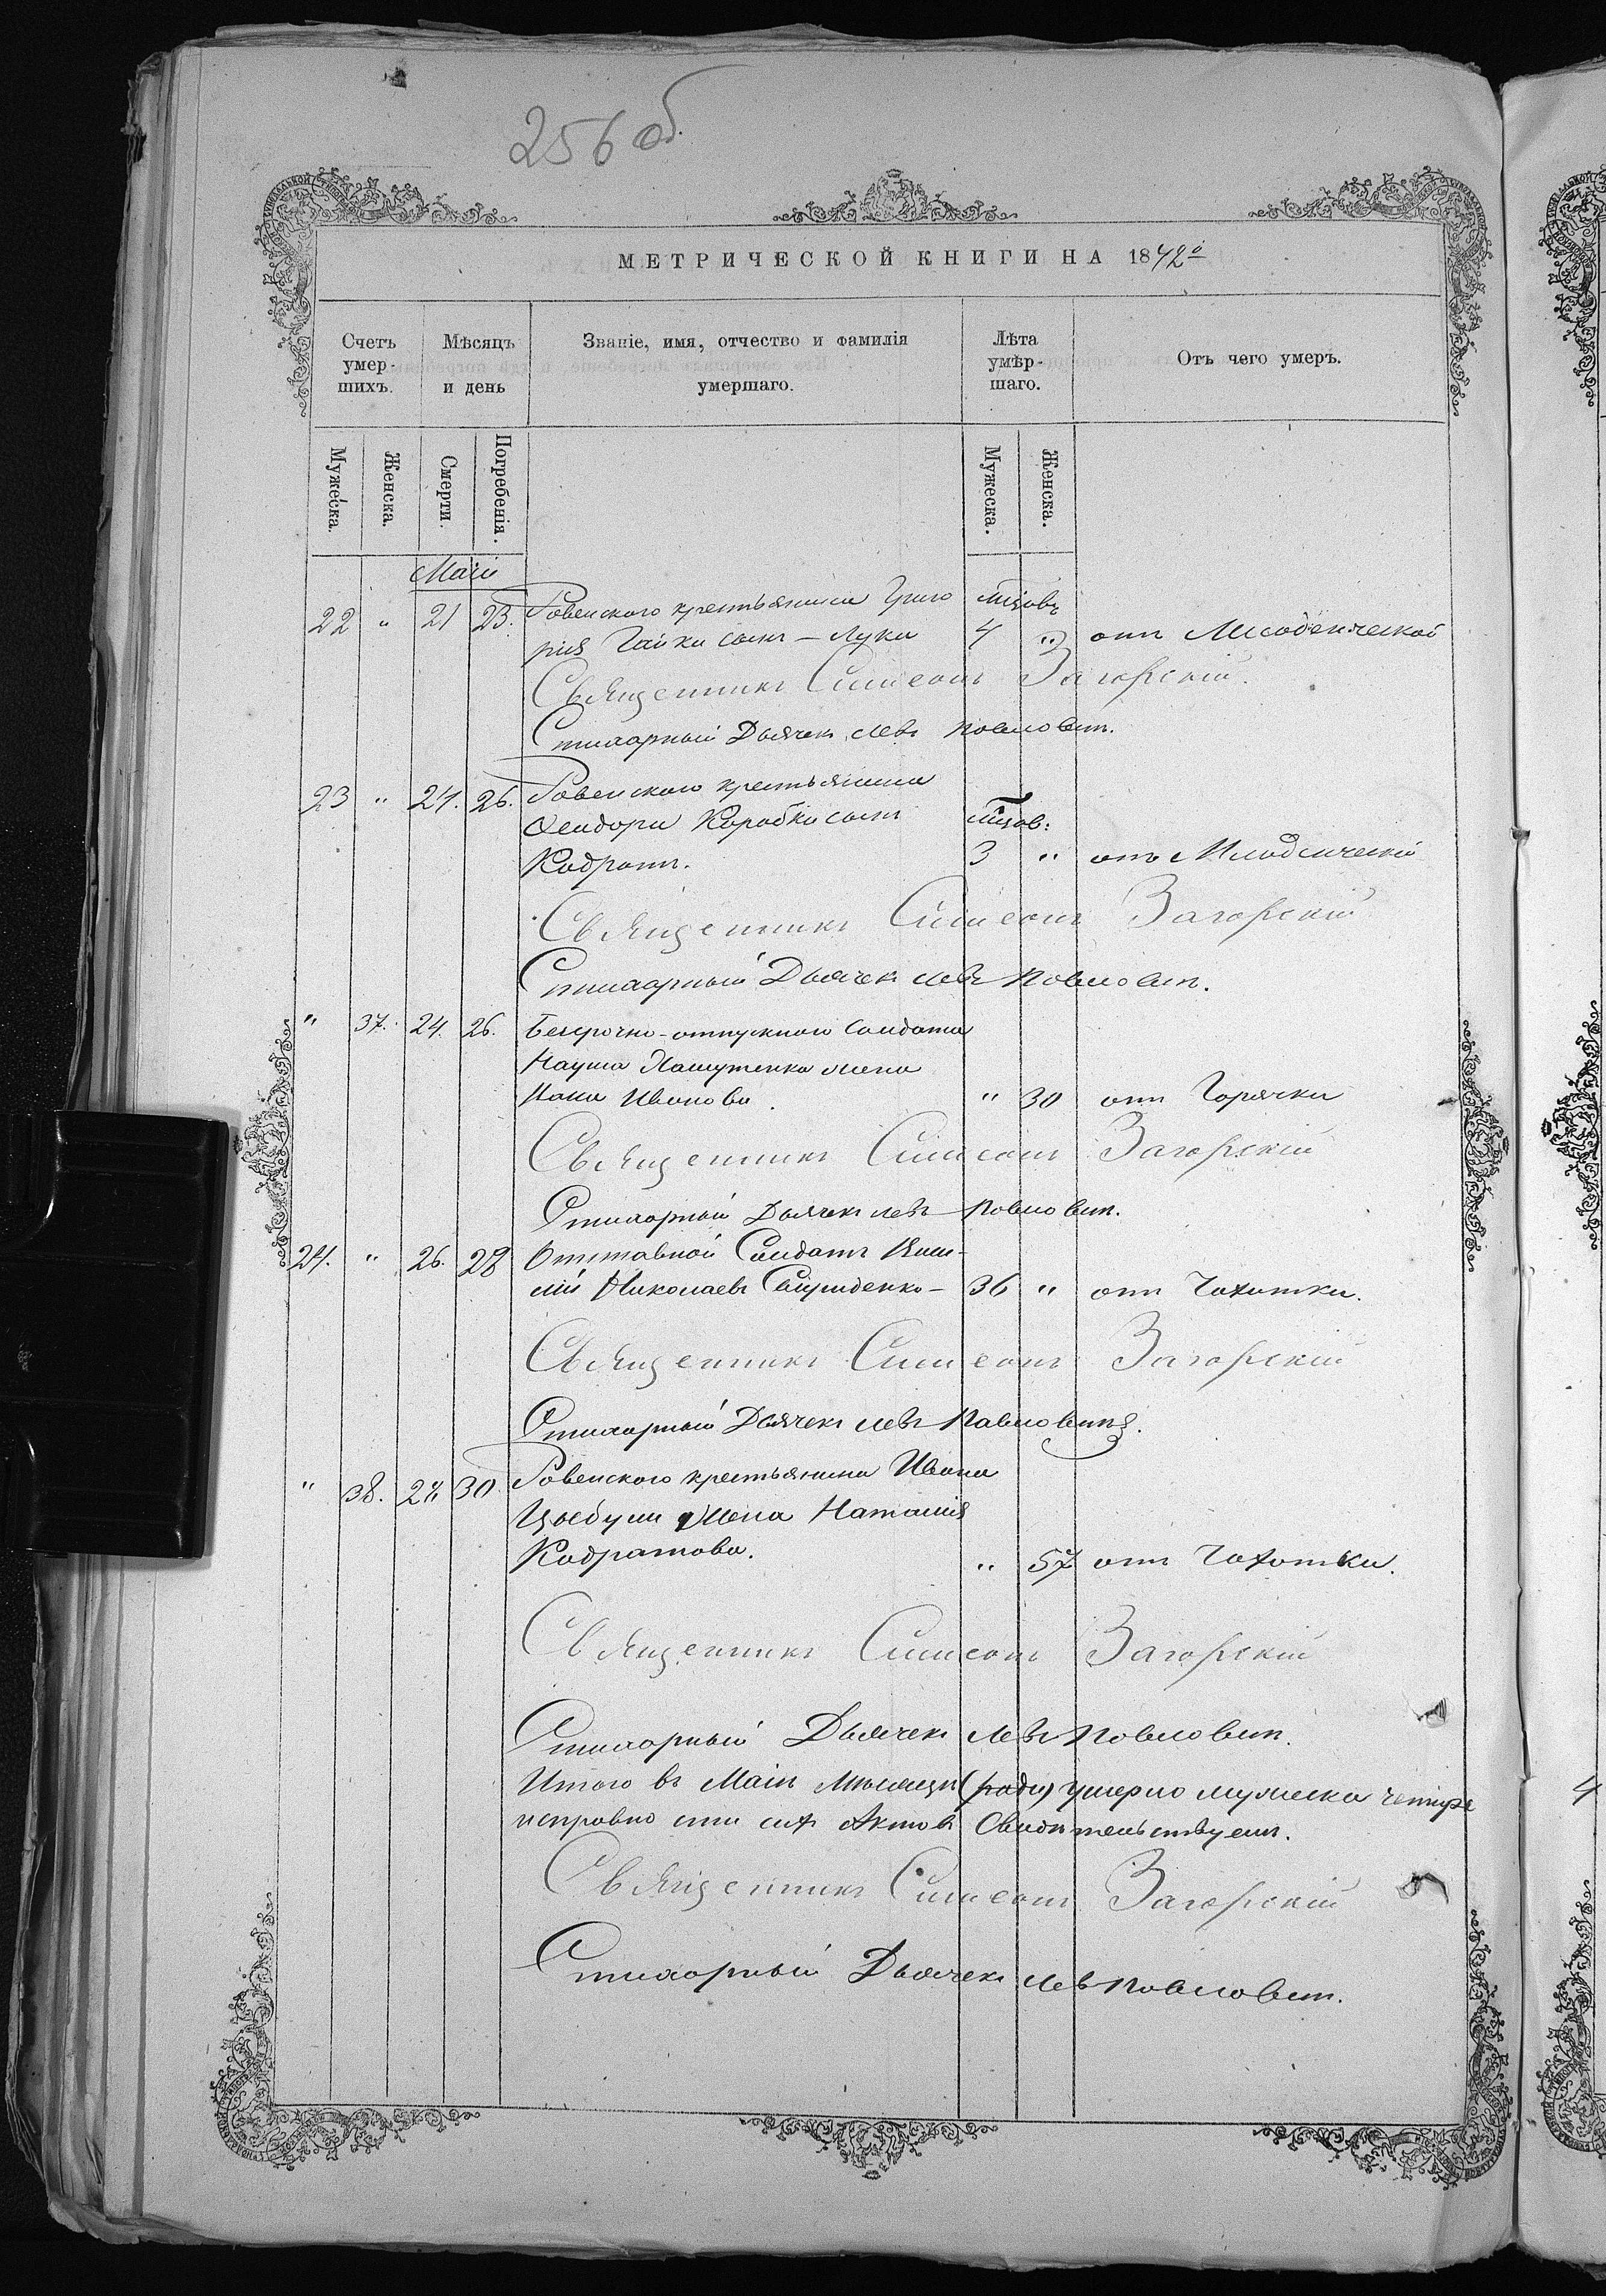 256 об.
МЕТРИЧЕСКОЙ КНИГИ НА 1872й
Счетъ умер-шихъ.
Мѣсяцъ и день
Званіе, имя, отчество и фамилія умершаго.
Лѣта умер-шаго.
Отъ чего умеръ.
Мужеска.
Женска.
Смерти.
Погребенія.
Мужеска.
Женска.
Маій
22 " 21 23. Ровенского крестьянина Григо мцовъ
рія Гайки сынъ - Лука 4 " отъ Младенческой
Священникъ Симеонъ Загорскій.
Стихарный Дьячек Левъ Павловичъ.
23 " 24. 26. Ровенского крестьянина
Феидора Коробки сынъ мцов:
Кодратъ. 3 " отъ Младенческій
Священникъ Симеонъ Загорскій
Стихарный Дьячек Левъ Павловичъ.
" 37. 24. 26. Безсрочно-отпускного солдата
Наума жена
Иванова. " 30 отъ Горячки
Священникъ Симеонъ Загорскій
Стихарный Дьячек Левъ Павловичъ.
24. " 26. 28 Отставной Солдатъ Васи-
лій Николаевъ Свириденко - 36 " отъ Чахотки.
Священникъ Симеонъ Загорскій
Стихарный Дьячек Левъ Павловичъ.
" 38. 28 30 Ровенского крестьянина Ивана
Цыбули жена Наталія
Кодратова. " 57 отъ Чахотки.
Священникъ Симеонъ Загорскій
Стихарный Дьячек Левъ Павловичъ.
Итого въ Маіи Мѣсяцѣ (роди) умерло мужеска четыре
исправно сти сихъ Актовъ Свидѣтельствуемъ.
Священникъ Симеонъ Загорскій
Стихарный Дьячек Левъ Павловичъ.
4